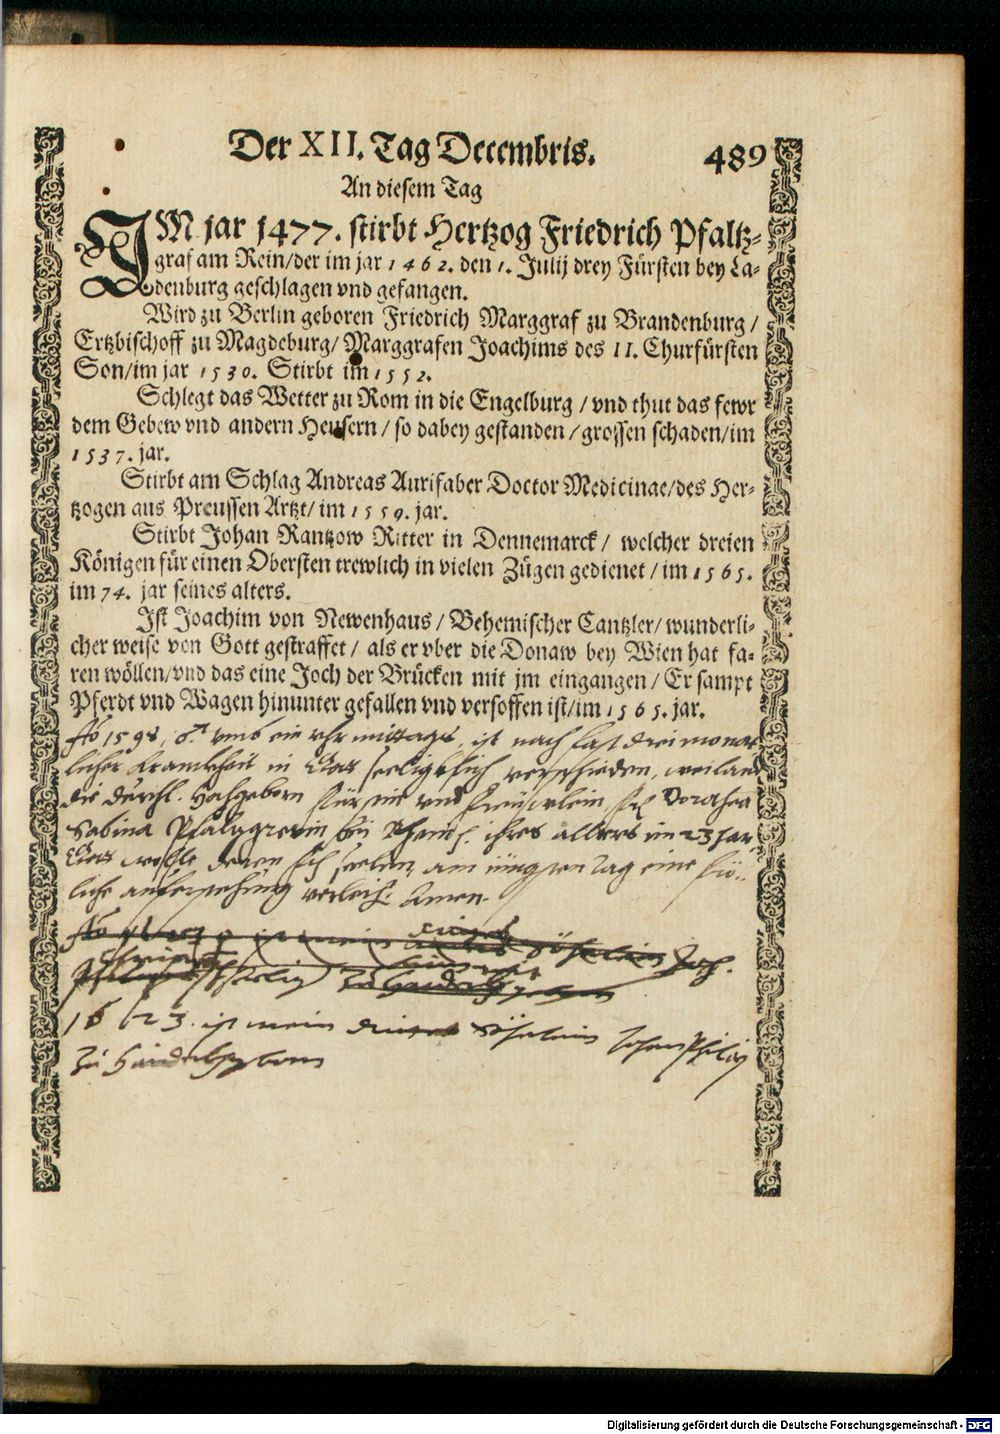 Der XII. Tag Decembris. 489
An diesem Tag
IM jar 1477. stirbt Hertzog Friedrich Pfaltz-
graf am Rein/der im jar 1462. den 1. Julij drey Fürsten bey La-
denburg geschlagen vnd gefangen.
Wird zu Berlin geboren Friedrich Marggraf zu Brandenburg/
Ertzbischoff zu Magdeburg/ Marggrafen Joachims des II. Churfürsten
Son/im jar 1530. Stirbt im 1552.
Schlegt das Wetter zu Rom in die Engelburg/vnd thut das fewr
dem Gebew vnd andern Heusern/so dabey gestanden/grossen schaden/im
1537. jar.
Stirbt am Schlag Andreas Aurifaber Doctor Medicinae/des Her-
tzogen aus Preussen Artzt/im 1559. jar.
Stirbt Johan Rantzow Ritter in Dennemarck/ welcher dreien
Königen für einen Obersten trewlich in vielen Zügen gedienet/im 1565.
im 74. jar seines alters.
Ist Joachim von Newenhaus/ Behemischer Cantzler/ wunderli-
cher weise von Gott gestraffet/ als er vber die Donaw bey Wien hat fa-
ren wöllen/vnd das eine Joch der Brücken mit jm eingangen/ Er sampt
Pferdt vnd Wagen hinunter gefallen vnd versoffen ist/im 1565. jar.
Ao 1598, vmb ein vhr mittags, ist nach fast drei monat
licher Krankheit in Gott seeligklich verschieden, weiland
die durchl. Hochgeborn Fürstin vnd Freuwlein Dorothea
Sabina Pfalzgrevin bei Rhein, ihres alters im 23 Jar
Gott wolle deren seelen, am jüngsten Tag eine frö..
liche auferstehung verleih. Amen.
ist mein Söhnlein Joh.
zu Haidelberg
1623. ist mein Söhnlein Johan Philips
Zu Haidelberg born